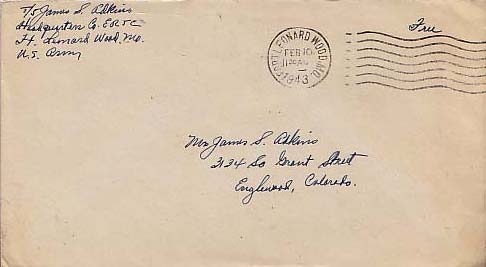 T/5 James S. Adkins
Headquarters Co. E.R.T.C.
Ft. Leonard Wood, Mo.
U.S. Army
FORT LEONARD WOOD, MO.
FEB 10
11 AM
1943
Free
Mr James S. Adkins
3134 So Grant Street
Englewood, Colorado.